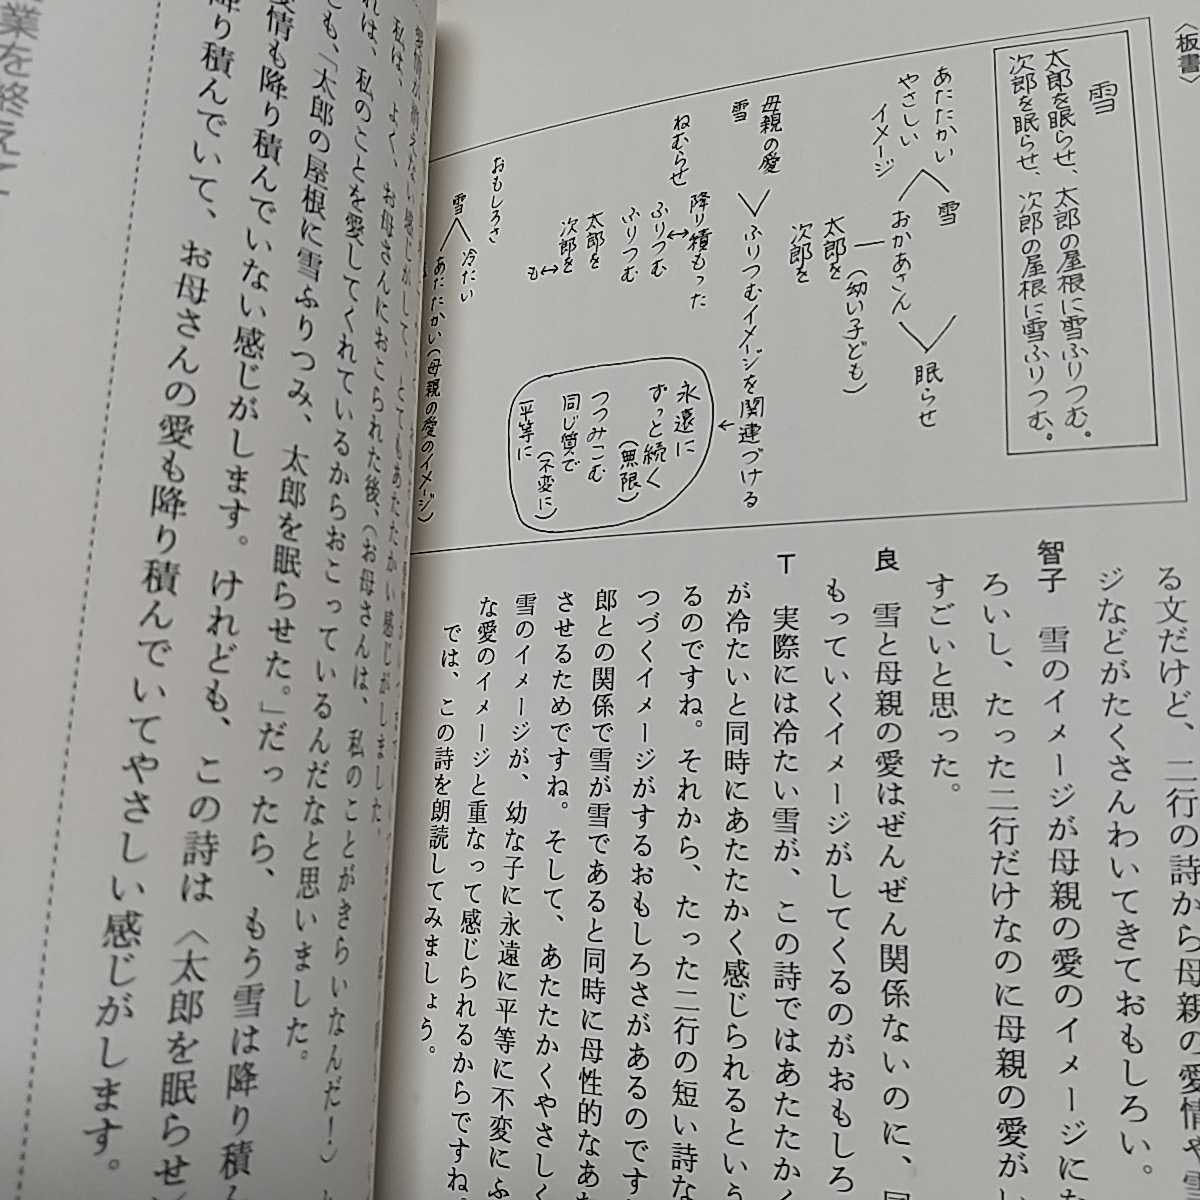 〈板書〉
雪
太郎を眠らせ、太郎の屋根に雪ふりつむ。
次郎を眠らせ、次郎の屋根に雪ふりつむ。
あたたかい
やさしい
イメージ
雪
おかあさん
眠らせ
太郎を
次郎を
(幼い子ども)
母親の愛
雪
ふりつむイメージを関連づける
ねむらせ
降り積もった
↔
ふりつむ
ふりつむ
太郎を
次郎を
↔
も
永遠に
ずっと続く
(無限)
つつみこむ
同じ質で
(不変に)
平等に
おもしろさ
雪
冷たい
あたたかい(母親の愛のイメージ)
る文だけど、二行の詩から母親の愛情や雪
ジなどがたくさんわいてきておもしろい。
智子 雪のイメージが母親の愛のイメージにな
ろいし、たった二行だけなのに母親の愛が
すごいと思った。
良 雪と母親の愛はぜんぜん関係ないのに、
もっていくイメージがしてくるのがおもしろ
T 実際には冷たい雪が、この詩ではあたたかく
が冷たいと同時にあたたかく感じられるという
るのですね。それから、たった二行の短い詩な
つづくイメージがするおもしろさがあるのです
郎との関係で雪が雪であると同時に母性的なあ
させるためですね。そして、あたたかくやさしく
雪のイメージが、幼な子に永遠に平等に不変にふ
な愛のイメージと重なって感じられるからですね。
では、この詩を朗読してみましょう。
私は、よく、お母さんにおこられた後、(お母さんは、私のことがきらいなんだ！)
れは、私のことを愛してくれているからおこっているんだなと思いました。
ども、「太郎の屋根に雪ふりつみ、太郎を眠らせた。」だったら、もう雪は降り積
愛情も降り積んでいない感じがします。けれども、この詩は〈太郎を眠らせ
降り積んでいて、お母さんの愛も降り積んでいてやさしい感じがします。
業を終えて